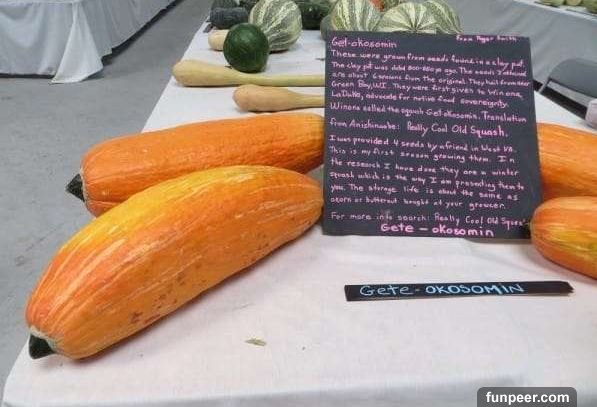 From Roger Smith
Get-okosomin
These were grown from seeds found in a clay pot.
The clay pot was dated 800-850 yo ago. The seeds I obtained
are about 6 seasons from the original. They hail from near
Green Bay, WI. They were first given to Winona
LaDuke, advocate for native food sovereignty.
Winona called the squash Gete-okosomin. Translation
from Anishinaabe: Really Cool Old Squash.
I was provided 4 seeds by a friend in West VA.
This is my first season growing them. In
the research I have done they are a winter
squash which is the way I am presenting them to
you. The storage life is about the same as
acorn or butternut bought at your grocer.
For more info search: Really Cool Old Squash
Gete - okosomin
Gete-OKOSOMIN
funpeer.com